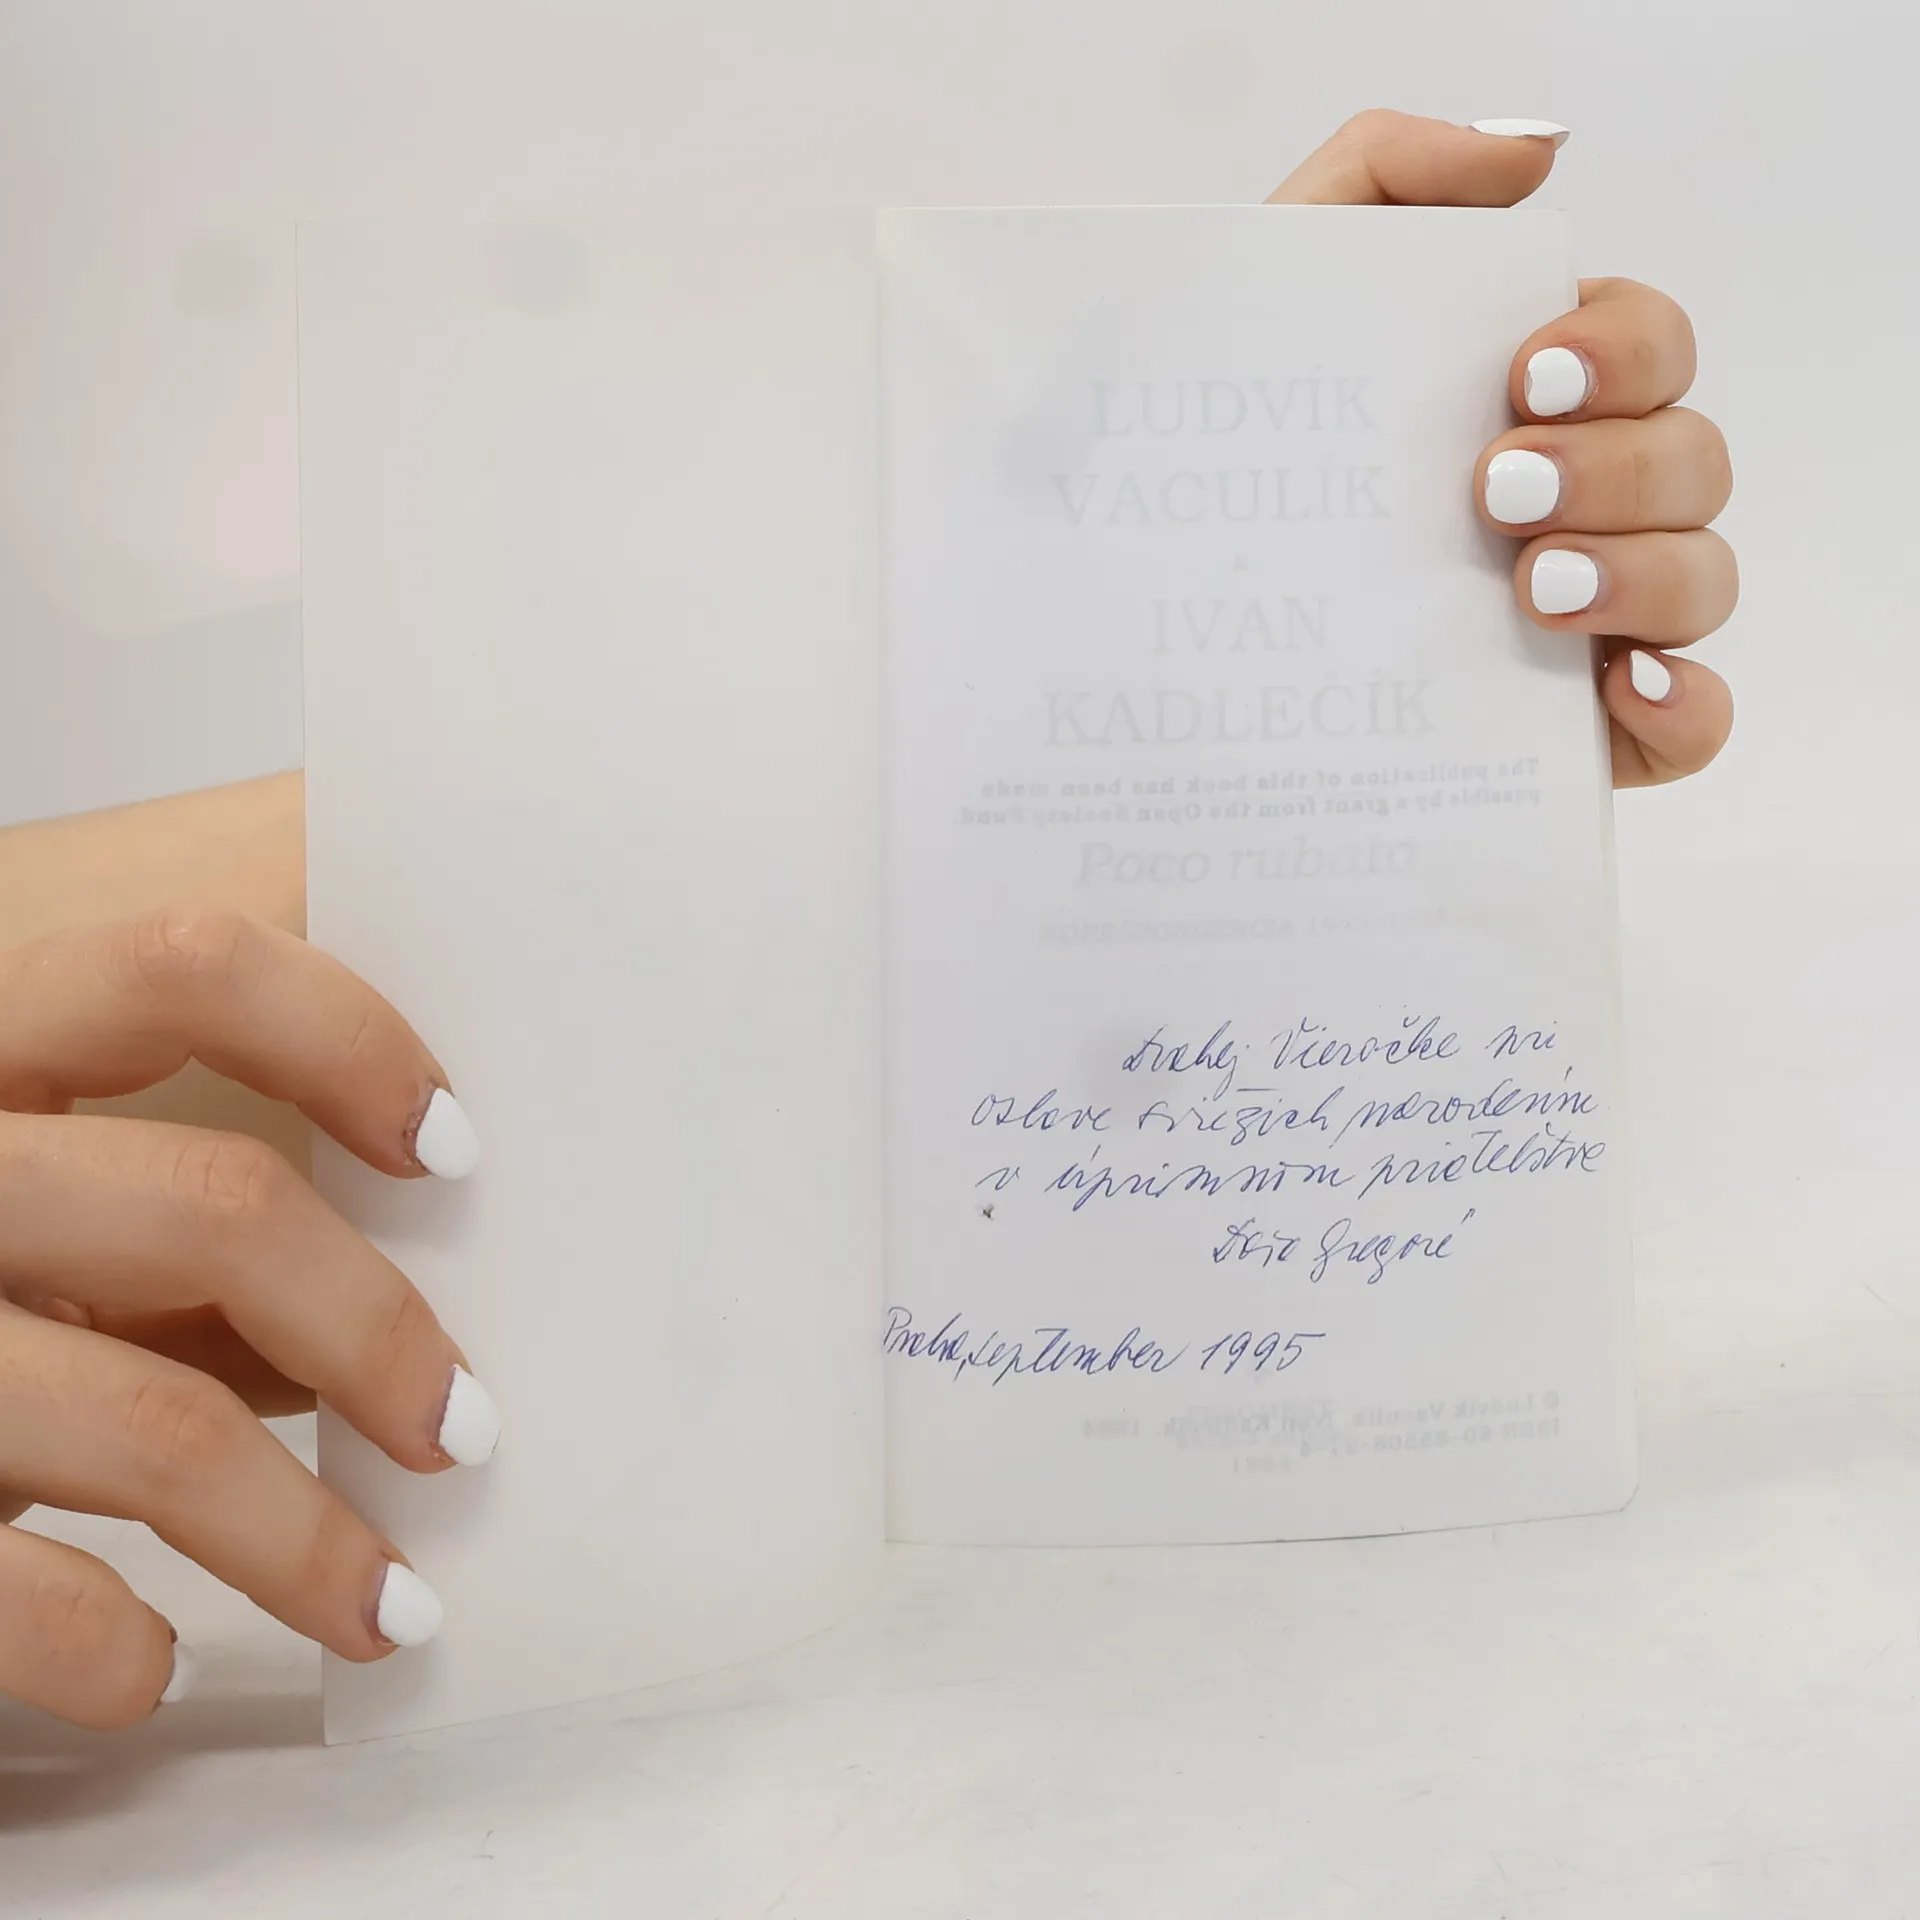 LUDVÍK
VACULÍK
a
IVAN
KADLEČÍK
The publication of this book has been made
possible by a grant from the Open Society Fund.
Poco rubato
KOREŠPONDENCIA
Drahej Vieročke pri
oslave sviežich narodenín
v úprimnom priateľstve
Praha, september 1995
© Ludvík Vaculík, Ivan Kadlečík, 1994
ISBN 80-85508-